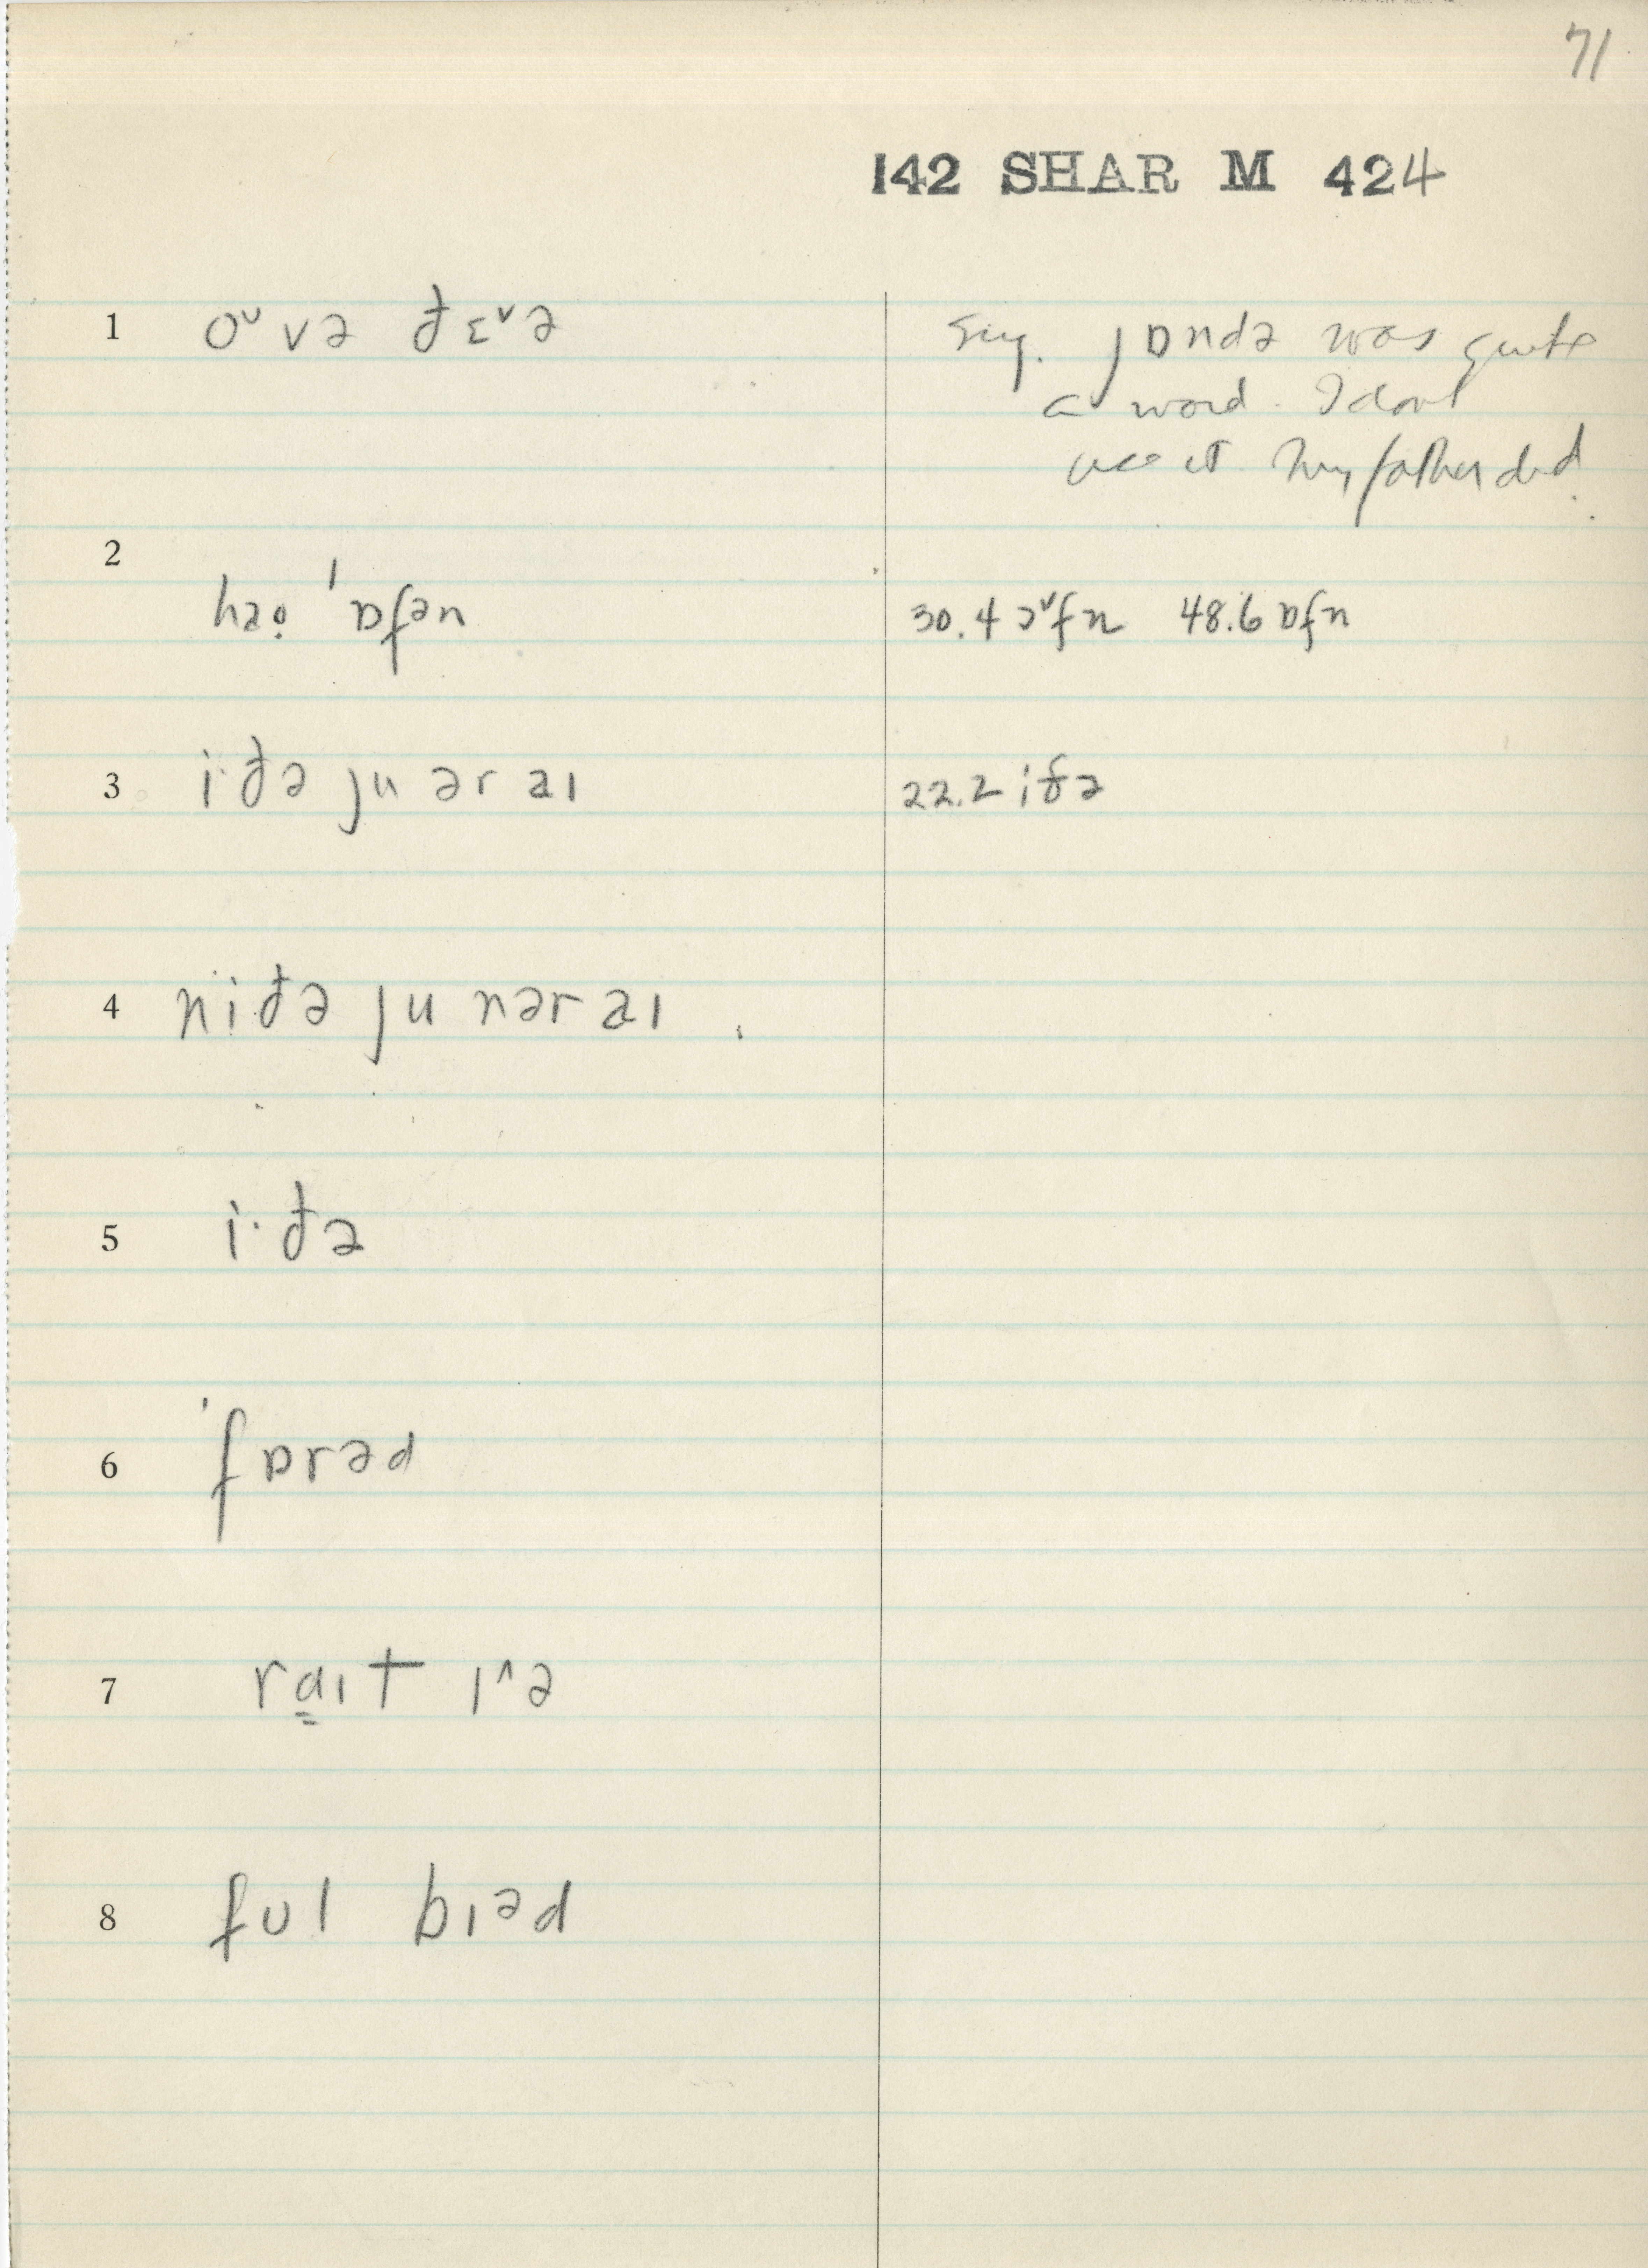 71
142 SHAR M 424
1 oᵛvə ðɛᵛə
sug. jɒndə was quite
a word. I dont
use it my father did.
2
haọ 'ɒfən 30.4 ɔᵛfn 48.6 ɒfn
3 i·ðə ju ər aɪ 22.2 iðə
4 niðə ju nər aɪ
5 i·ðə
6 'fɒrəd
7 ra̳ɪt ɪ^ə
8 fʊl bɪəd